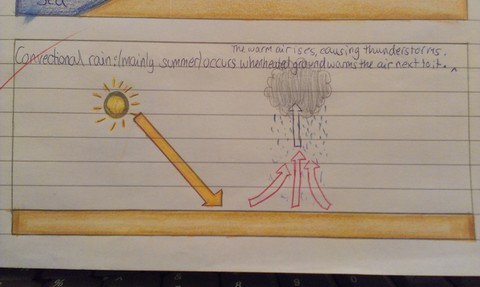 Sea
The warm air ises, causing thunderstorms.
Convectional rain:(mainly summer) occurs when heated ground warms the air next to it. ^